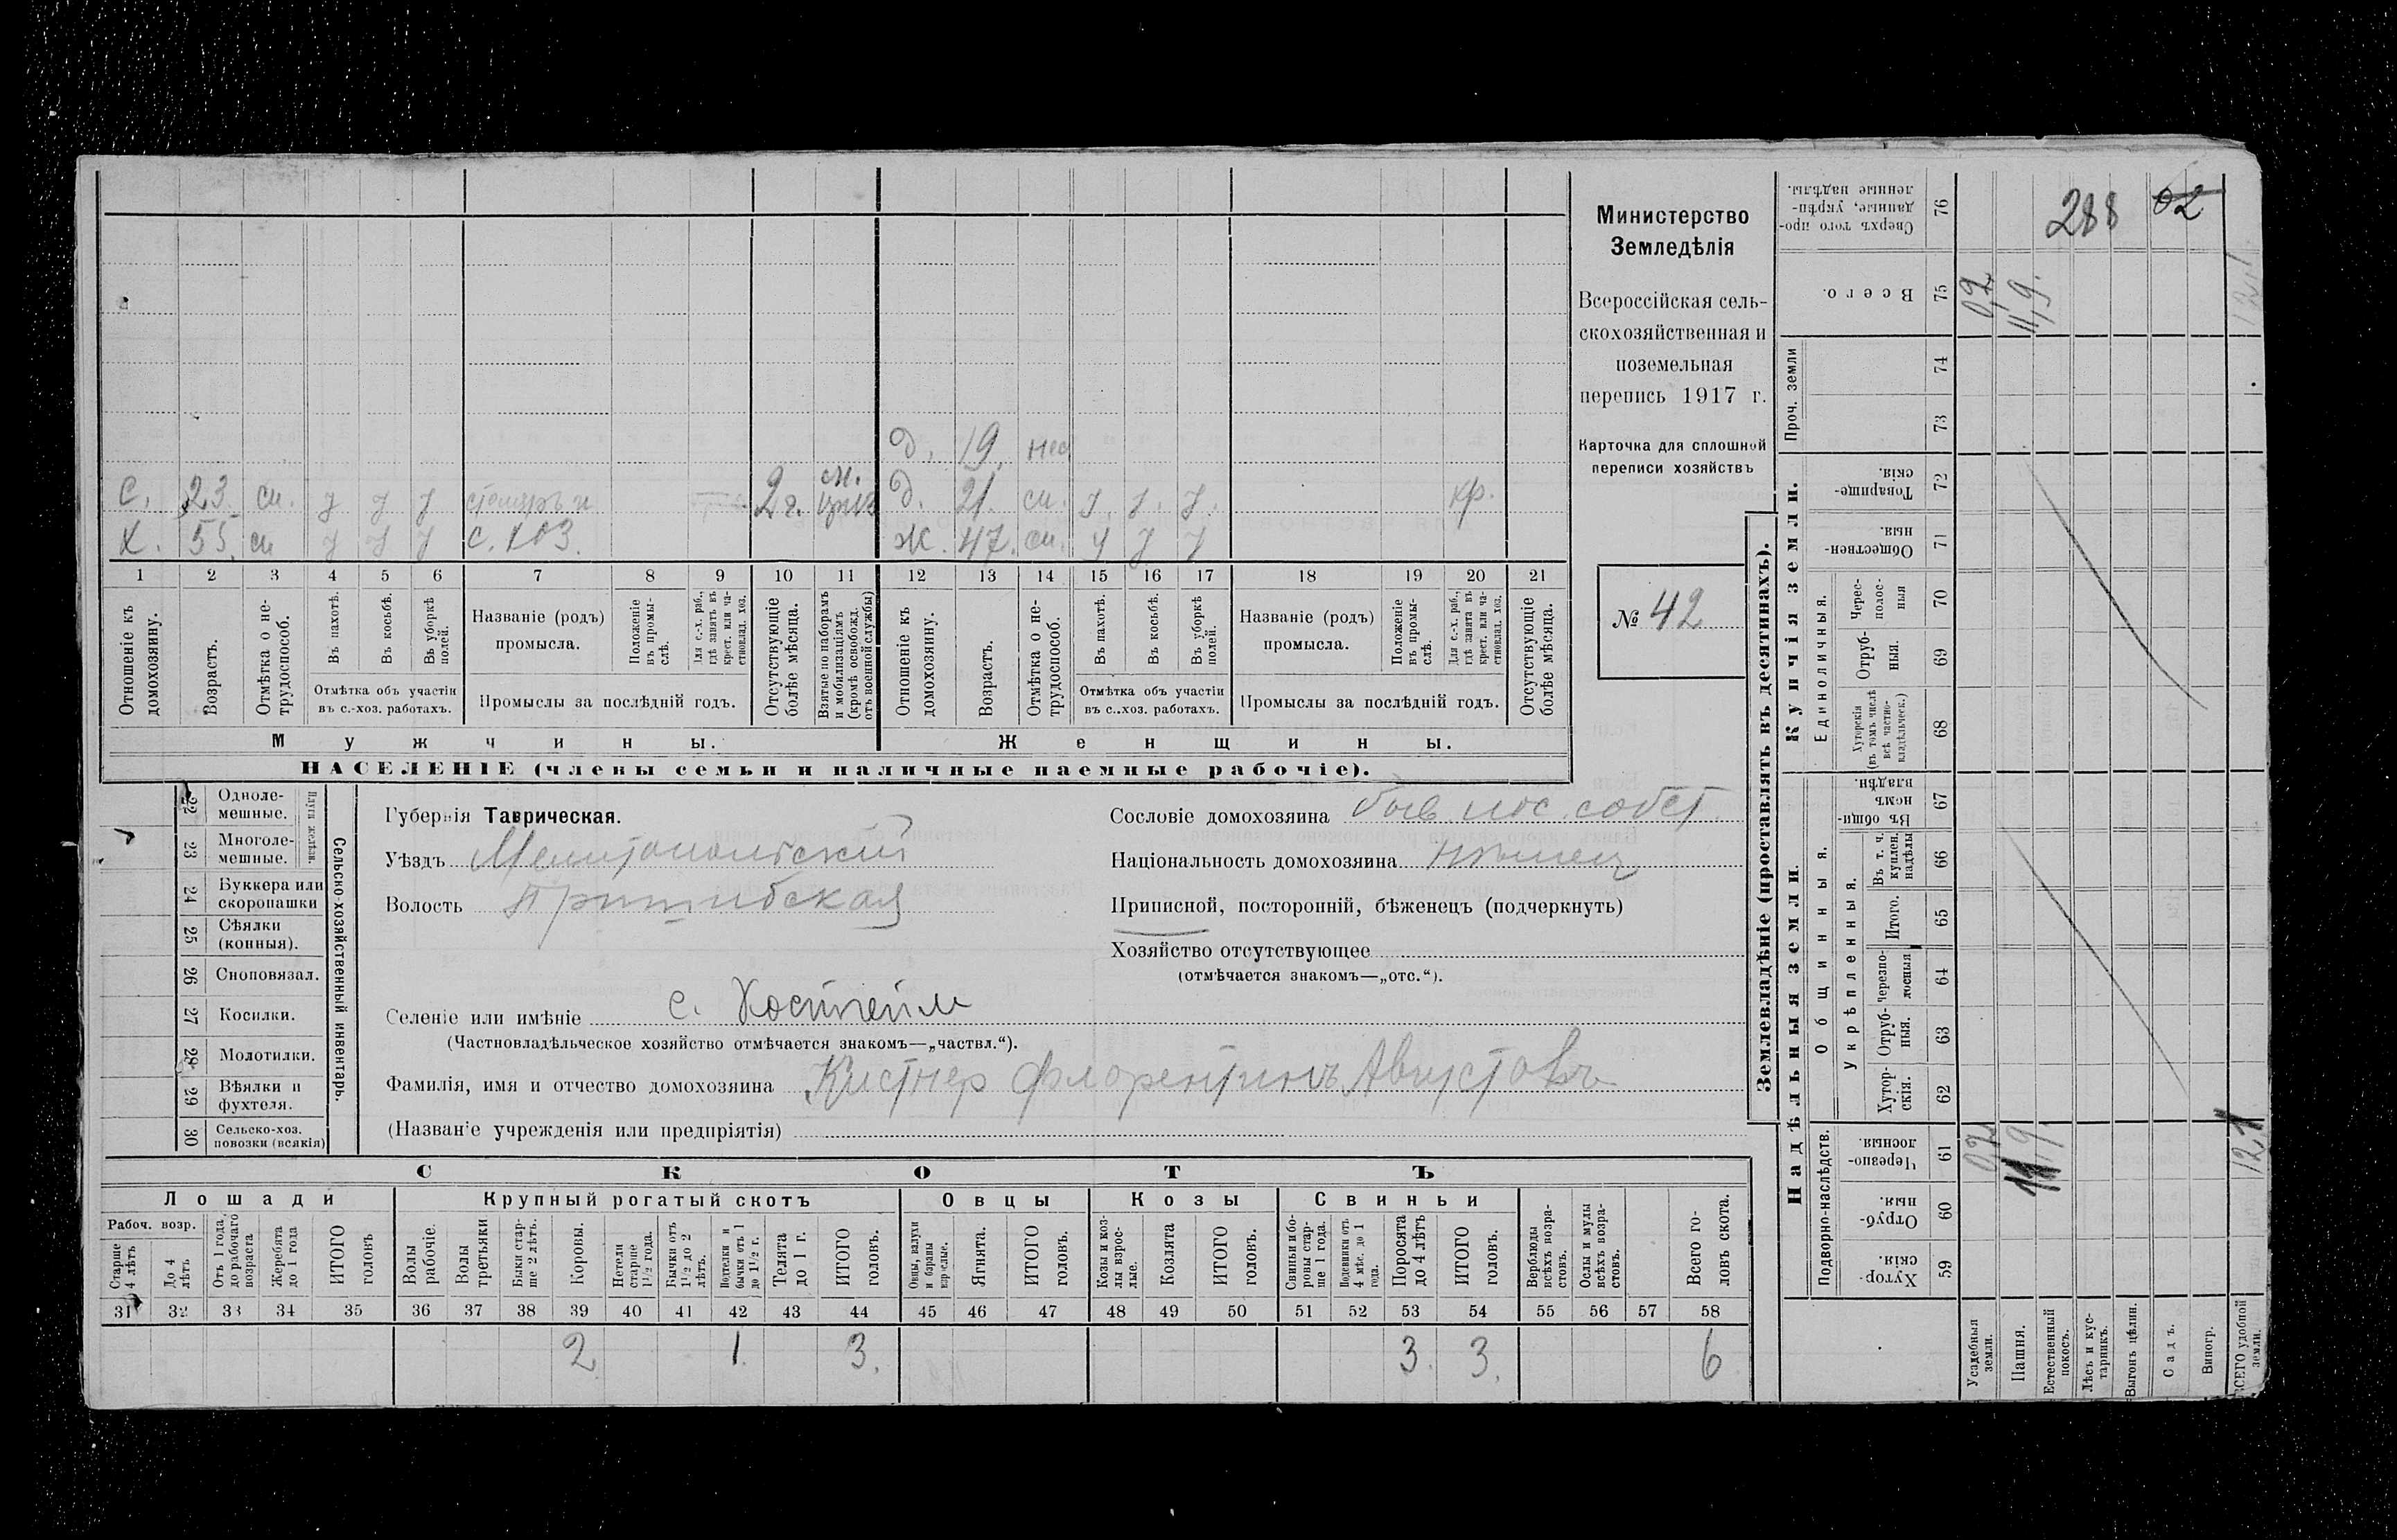 Министерство
Земледѣлія
Всероссійская сель-
скохозяйственная и
поземельная
перепись 1917 г.
Карточка для сплошной
переписи хозяйствъ
№ 42
Д. 19. нес
С. 23. сп. у у у 2 г. Д. 21. сп. у. у. у. кр.
Х. 55. сп у у у с. хоз. Ж. 47. сп. у у у
1 2 3 4 5 6 7 8 9 10 11 12 13 14 15 16 17 18 19 20 21
Отношеніе къ домохозяину.
Возрастъ.
Отмѣтка о не-трудоспособ.
Въ пахотѣ.
Въ косьбѣ.
Въ уборкѣ полей.
Отмѣтка объ участіи
въ с.-хоз. работахъ.
Названіе (родъ)
промысла.
Положеніе въ промы-слѣ.
Для с.-х. раб., гдѣ занятъ въ крест. или ча-стновлад. хоз.
Промыслы за послѣдній годъ.
Отсутствующіе болѣе мѣсяца.
Взятые по наборамъ и мобилизаціямъ (кромѣ освобожд. отъ военной службы)
Отношеніе къ домохозяину.
Возрастъ.
Отмѣтка о не-трудоспособ.
Въ пахотѣ.
Въ косьбѣ.
Въ уборкѣ полей.
Отмѣтка объ участіи
въ с..хоз. работахъ.
Названіе (родъ)
промысла.
Положеніе въ промы-слѣ.
Для с.-х. раб., гдѣ занята въ крест. или ча-стновлад. хоз.
Промыслы за послѣдній годъ.
Отсутствующіе болѣе мѣсяца.
Мужчины.
Женщины.
НАСЕЛЕНІЕ (члены семьи и наличные наемные рабочіе).
22 Одноле-мешные.
23 Многоле-мешные.
Плуги желѣзн.
24 Буккера или скоропашки
25 Сѣялки (конныя).
26 Сноповязал.
27 Косилки.
28 Молотилки.
29 Вѣялки и фухтеля.
30 Сельско-хоз. повозки (всякія)
Сельско-хозяйственный инвентарь.
Губернія Таврическая.
Уѣздъ Мелитопольскій
Волость Пришибская
Сословіе домохозяина быв. пос. собст.
Національность домохозяина нѣмец
Приписной, посторонній, бѣженецъ (подчеркнуть)
Хозяйство отсутствующее
(отмѣчается знакомъ—„отс.“).
Селеніе или имѣніе с. Костгейм
(Частновладѣльческое хозяйство отмѣчается знакомъ—„частвл.“).
Фамилія, имя и отчество домохозяина Кистнер Флорентинъ Августовъ
(Названіе учрежденія или предпріятія)
СКОТЪ
Лошади
Крупный рогатый скотъ
Овцы
Козы
Свиньи
Рабоч. возр.
Старше 4 лѣтъ
До 4 лѣтъ
Отъ 1 года до рабочаго возраста
Жеребята до 1 года
ИТОГО головъ
Волы рабочіе.
Волы третьяки
Быки стар-ше 2 лѣтъ.
Коровы.
Нетели старше 1½ года.
Бычки отъ 1½ до 2 лѣтъ.
Подтелки и бычки отъ 1 до 1½ г.
Телята до 1 г.
ИТОГО головъ.
Овцы, валухи и бараны взрослые.
Ягнята.
ИТОГО головъ.
Козы и коз-лы взрос-лые.
Козлята
ИТОГО головъ.
Свиньи и бо-ровы стар-ше 1 года.
Подсвинки отъ 4 мѣс. до 1 года.
Поросята до 4 лѣтъ
ИТОГО головъ.
Верблюды всѣхъ возра-стовъ.
Ослы и мулы всѣхъ возра-стовъ.
Всего го-ловъ скота.
31 32 33 34 35 36 37 38 39 40 41 42 43 44 45 46 47 48 49 50 51 52 53 54 55 56 57 58
2 1. 3. 3. 3. 6
Землевладѣніе (проставлять въ десятинахъ).
Надѣльныя земли.
Купчія земли.
Подворно-наслѣдств.
Общинныя.
Укрѣпленныя.
Единоличныя.
Проч. земли
Сверхъ того про-данные, укрѣп-ленные надѣлы. 76 288 02
Всего. 75 0,2 11,9. 12,1
74
73
Товарище-скія. 72
Обществен-ныя. 71
Черес-полос-ныя 70
Отруб-ныя. 69
Хуторскія (въ томъ числѣ всѣ частно-владѣльческ.) 68
Въ общи-номъ владѣн. 67
Въ т. ч. куплен. надѣлы 66
Итого. 65
Черезпо-лосныя 64
Отруб-ныя. 63
Хутор-скія. 62
Черезпо-лосныя. 61 0,2 11 9 12,1
Отруб-ныя. 60
Хутор-скія. 59
Усадебныя земли.
Пашня.
Естественный покосъ.
Лѣсъ и кус-тарникъ.
Выгонъ цѣлин.
Садъ.
Виногр.
ВСЕГО удобной земли.